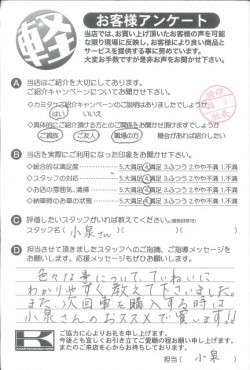 軽
お客様アンケート
当店では、お買い上げ頂いたお客様の声を可能
な限り現場に反映し、お客様により良い商品と
サービスを提供する事に努めています。
大変お手数ですが是非お声をお聞かせ下さい。
A 当店はご紹介を大切にしてあります。
ご紹介キャンペーンについてお聞かせ下さい。
◇カミタなご紹介キャンペーンのご説明はありましたでしょうか
はい いいえ
◇具体的にご紹介頂ける方とのご関係をお聞かせ頂けますでしょうか
ご親族 ご友人 職場の方 機会があれば紹介したい
B 当店を実際にご利用になった印象をお聞かせ下さい。
◇総合的な満足度 5.大満足 4.満足 3.ふつう 2.やや不満 1.不満
◇スタッフの対応 5.大満足 4.満足 3.ふつう 2.やや不満 1.不満
◇お店の雰囲気、清掃 5.大満足 4.満足 3.ふつう 2.やや不満 1.不満
◇納車時のお車の状態 5.大満足 4.満足 3.ふつう 2.やや不満 1.不満
C 評価したいスタッフがいれば教えてください。(複数回答可)
スタッフ名( 小泉さん )
D 担当させて頂きましたスタッフへのご指摘、ご指導メッセージを
お願いします。応援メッセージもぜひお願いします。
色々な事について、ていねいに
わかりやすく教えて下さいました。
また、次回車を購入する時は
小泉さんのおススメで買います!!
K
ご協力に心よりお礼を申し上げます。
今後とも宜しくお引き立てご愛顧の程お願い申し上げます。
またのご来店を心からお待ちしております。
担当( 小泉 )